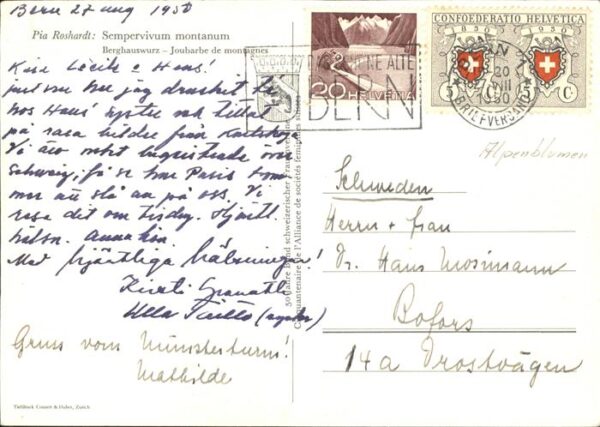 Bern 27 aug 1950
Pia Roshardt: Sempervivum montanum
Berghauswurz – Joubarbe de montagnes
Kära Cécile o Hans!
just nu har jag druckit te
hos Hans' syster och tittat
på rara bilder från
Vi äro mkt begeistrade över
Schweiz, få se hur Paris kom-
mer att slå an på oss. Vi
resa dit om tisdag. Hjärtl.
hälsn.
Med hjärtliga hälsningar!
Kirsti
Ulla
Gruss vom Münsterturm!
Mathilde
Tiefdruck Conzett & Huber, Zürich
50 Jahre Bund schweizerischer Frauenvereine
Cinquantenaire de l'Alliance de sociétés féminines suisses
20 HELVETIA
CONFOEDERATIO HELVETICA
1850 1950
5 C. 5 C.
ALTE
BERN
BERN
1950
BRIEFVERSAND
Alpenblumen
Schweden
Herrn + Frau
Dr. Hans Mosimann
Bofors
14a Prostvägen